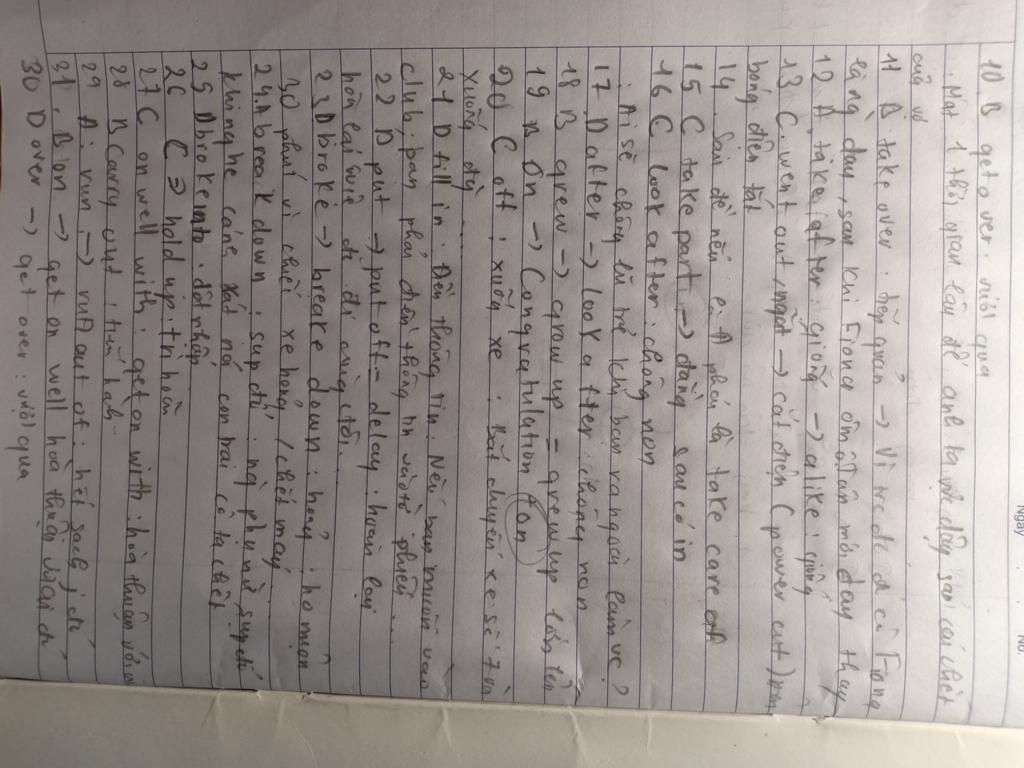 Ngày No.
10. B get over: vượt qua
Mất 1 thời gian lâu để anh ta vực dậy sau cái chết
của vợ
11 B take over: tiếp quản → Vì trade đã có Fiona
làng dạy, sau khi Fiona ốm ôTân mới dạy thay
12 A, take after: giống → alike: giống
13 C went out, ngắt → cắt điện (power cut)
bóng điện tắt
14. Sai đề nên ei A phải là take care of
15 C take part → đằng sau có in
16 C look after: chăm non
Ai sẽ chông lũ trẻ khi bạn ra ngoài làm việc?
17 D after → look after: chông non
18 B grew → grow up = grewup lớn lên
19 B On → Congratulation (on)
20 C off: xuống xe: chuyến xe số 7
xuống đây
21 D fill in. Điền thông tin. Nếu bạn muốn vào
club, bạn phải điền thông tin vào tờ phiếu
22 D put → put off = delay: hoãn lại
hoãn lại việc đi đi cùng tôi...
23 D broke → break down: hỏng: ho muộn
30 phút vì chiếc xe hỏng / chết máy
24 A break down: sụp đổ: người phụ nữ sụp đổ
khi nghe cảnh sát nói con trai cô ta chết
25 D broke into. đột nhập
26 C ⇒ hold up: trì hoãn
27 C on well with: get on with: hòa thuận với
28 B Carry out: tiến hành
29 A: run → run out of: hết sạch j đó
31. B on → get on well hoà thuận với ai đó
30 D over → get over: vượt qua